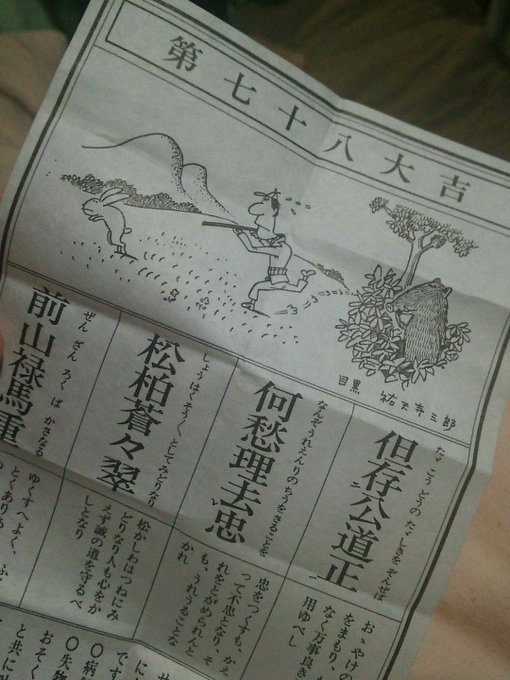 第七十八大吉
目黒 祐天寺三郎
たゞこうどうのたゞしきをぞんぜば
但存公道正
おゝやけの
をまもり、
なく万事良き
用ゆべし
なんぞうれえんりのちうをさることを
何愁理去忠
忠をつくすも、かえ
って不忠となり、そ
れをとがめらるゝと
も、うれうることな
かれ
しょうはくそう〳〵としてみどりなり
松柏蒼々翠
松かしわはつねにみ
どりなり人も心をか
えず誠の道を守るべ
しとなり
ぜんざんろくばかさなる
前山禄馬重
ゆくすへよく、
です
〇病
〇失物
おそく
と共に